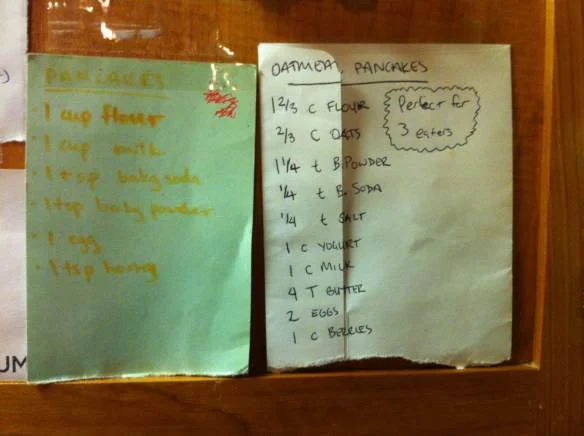 PANCAKES
· 1 cup flour
· 1 cup milk
· 1 tsp baking soda
· 1 tsp baking powder
· 1 egg
· 1 tsp honey
OATMEAL PANCAKES
1 2/3 C FLOUR
2/3 C OATS
1 1/4 t B.POWDER
1/4 t B. SODA
1/4 t SALT
1 C YOGURT
1 C MILK
4 T BUTTER
2 EGGS
1 C BERRIES
Perfect for
3 eaters
UM